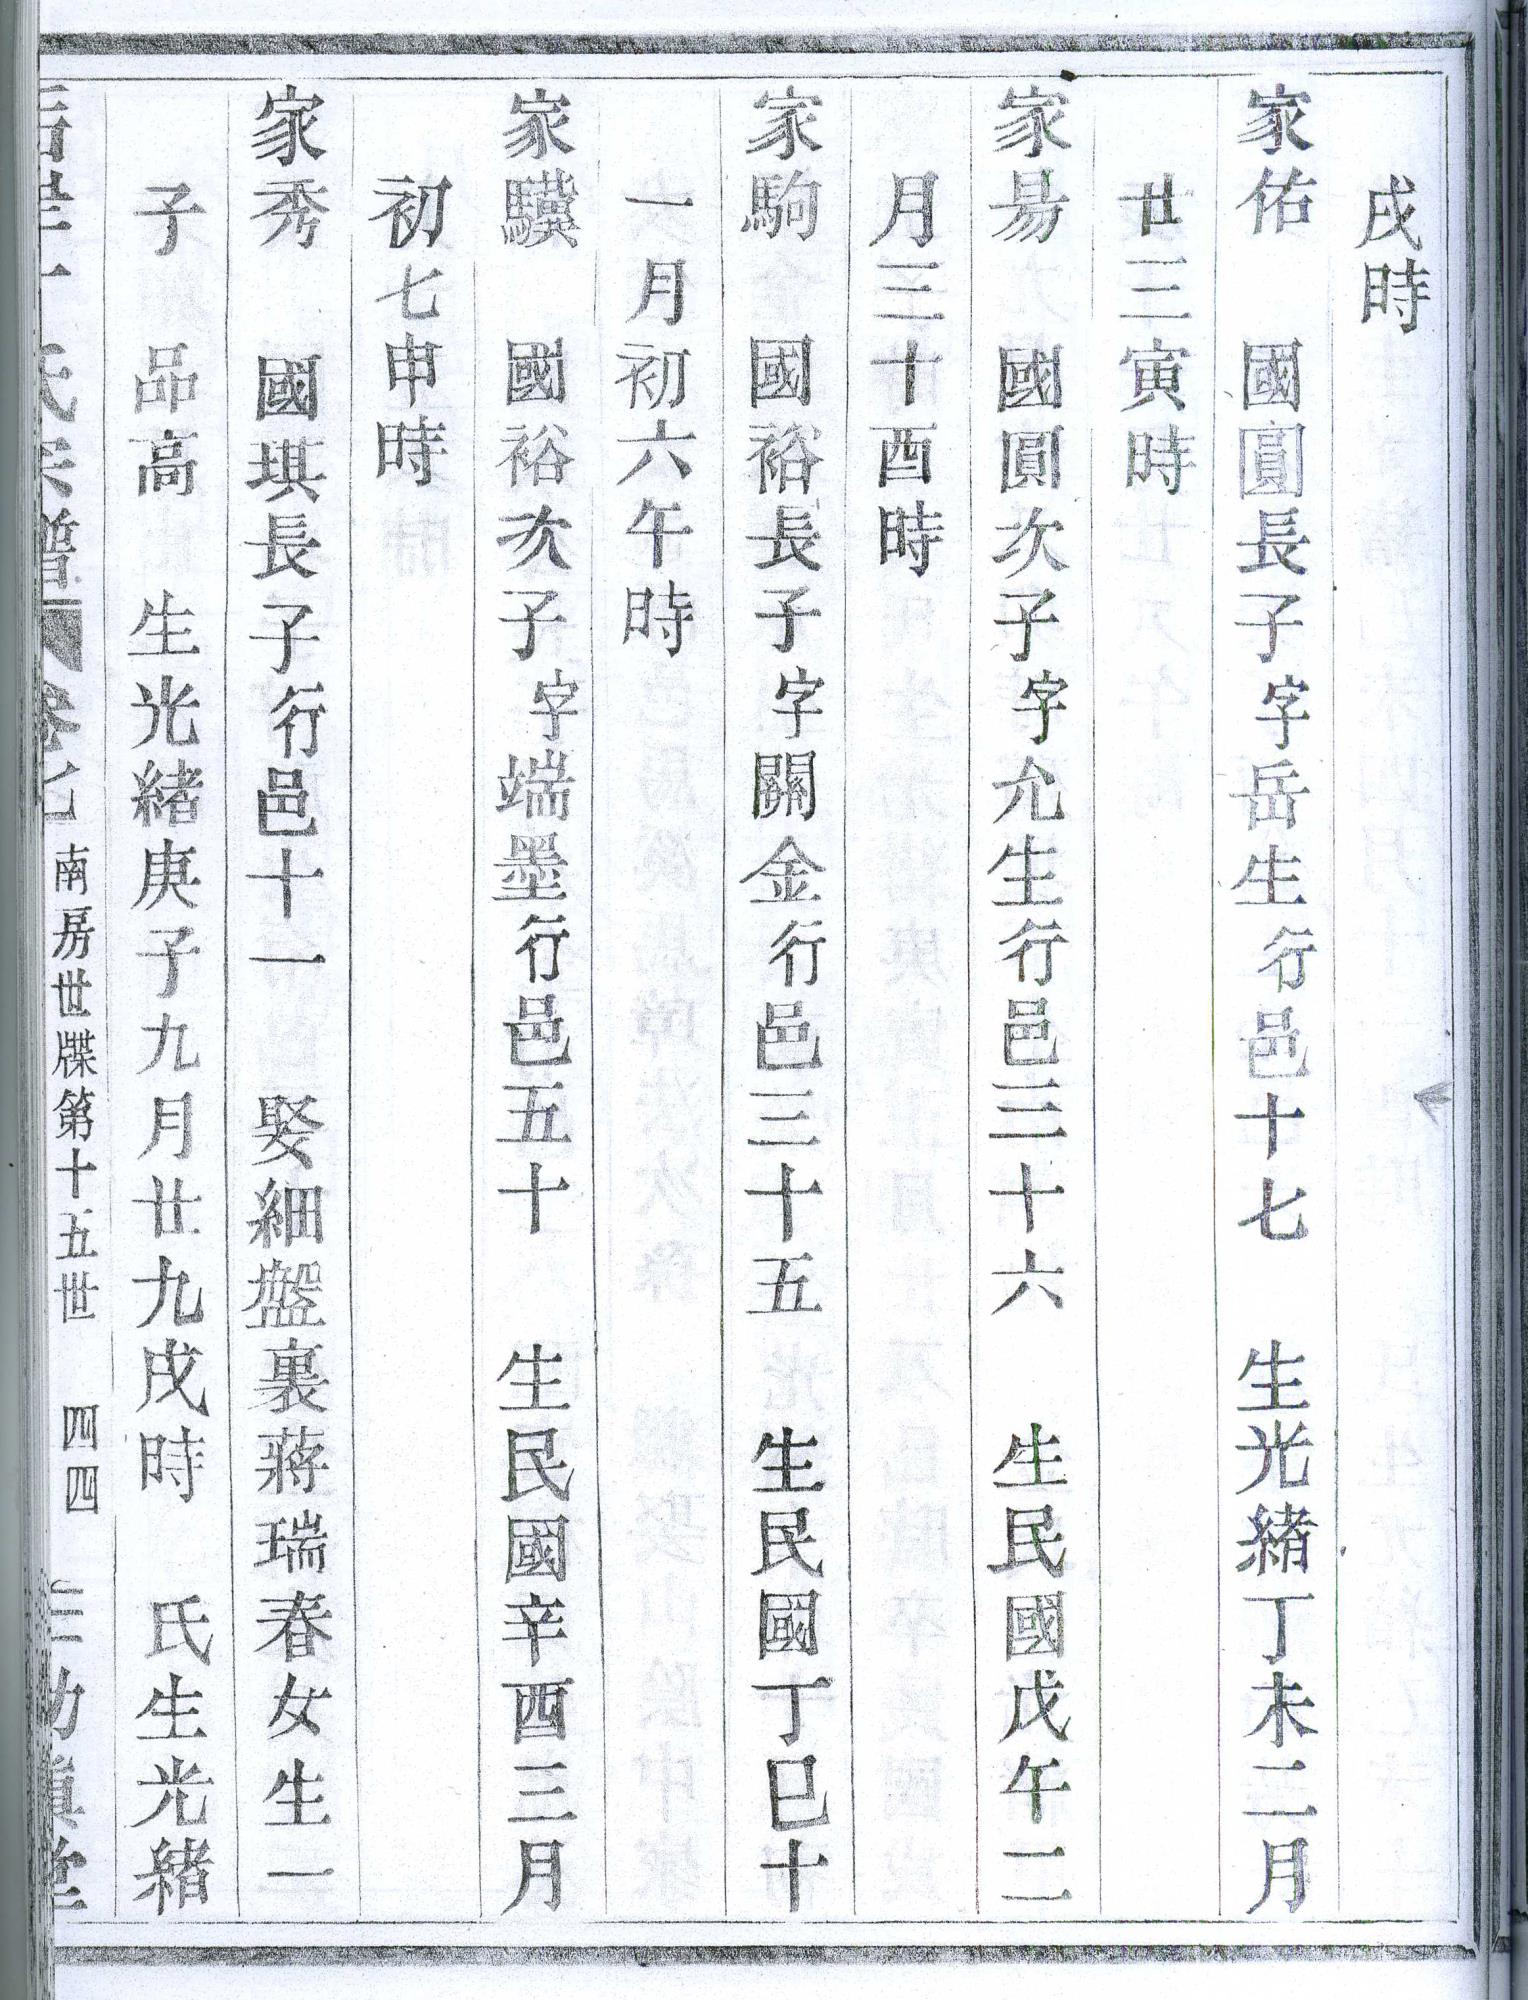 戌時
家佑　國圓長子字岳生行邑十七　生光緒丁未二月
廿三寅時
家昜　國圓次子字允生行邑三十六　生民國戊午二
月三十酉時
家駒　國裕長子字關金行邑三十五　生民國丁巳十
一月初六午時
家驥　國裕次子字端墨行邑五十　生民國辛酉三月
初七申時
家秀　國堪長子行邑十一　娶細盤裏蔣瑞春女生一
子　品高　生光緒庚子九月廿九戌時　氏生光緒
氏宗譜　卷七　南房世牒第十五世　四四　三勿眞堂